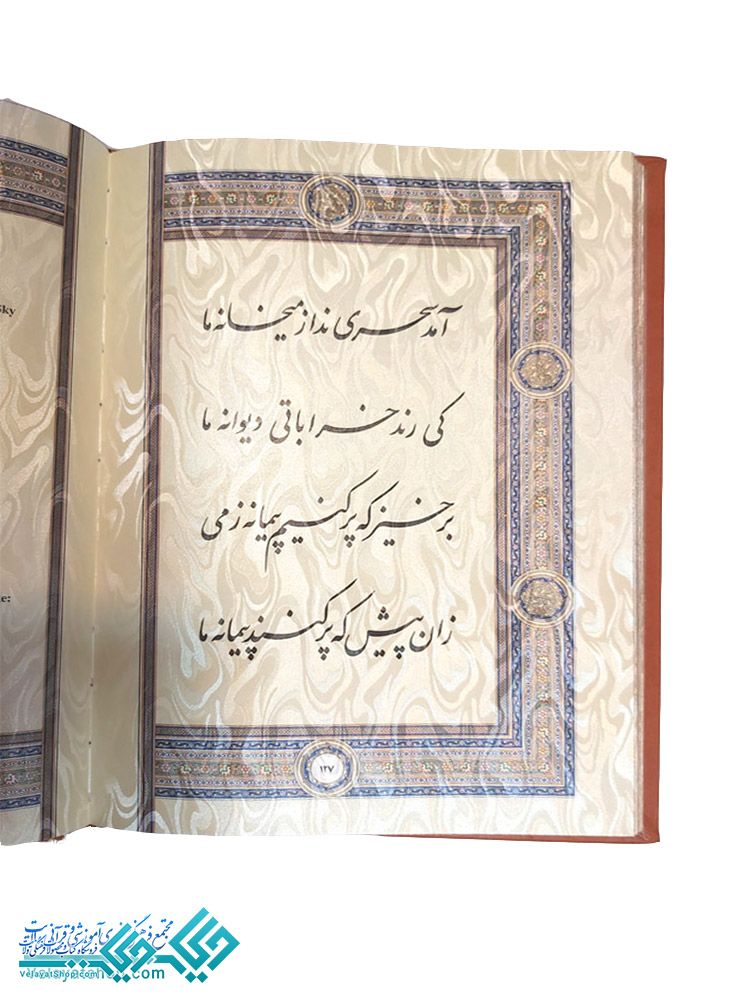 آمد سحری ندا ز میخانه ما
کی رند خراباتی دیوانه ما
برخیز که پر کنیم پیمانه ز می
زان پیش که پر کنند پیمانه ما
۱۲۷
ky
e:
velayatshop.com